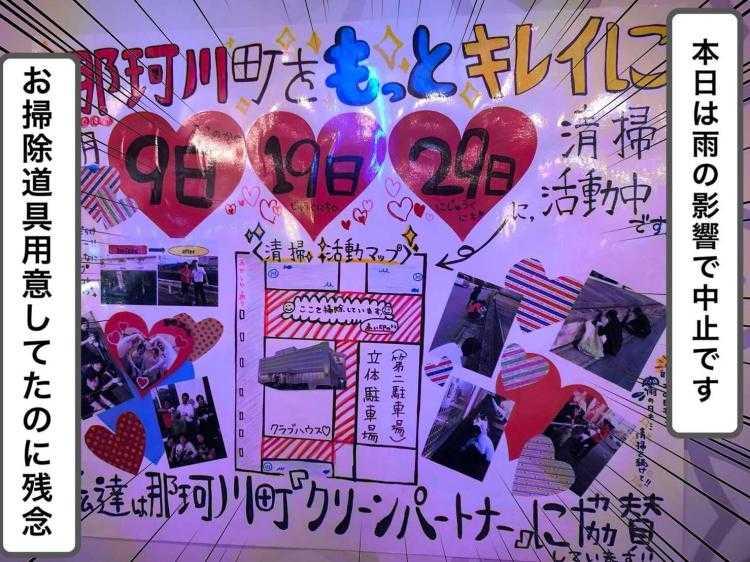 本日は雨の影響で中止です
お掃除道具用意してたのに残念
那珂川町をもっとキレイに
月
9日
19日
29日
ここのか
じゅうくにち
にじゅうく
にち
に、清掃
活動中
です
清掃活動マップ
before
after
ここを掃除しています
クラブハウス♡
立体駐車場
(第二駐車場)
雨の日も…
清掃を続けて!!
私達は那珂川町『クリーンパートナー』に協賛
しています!!